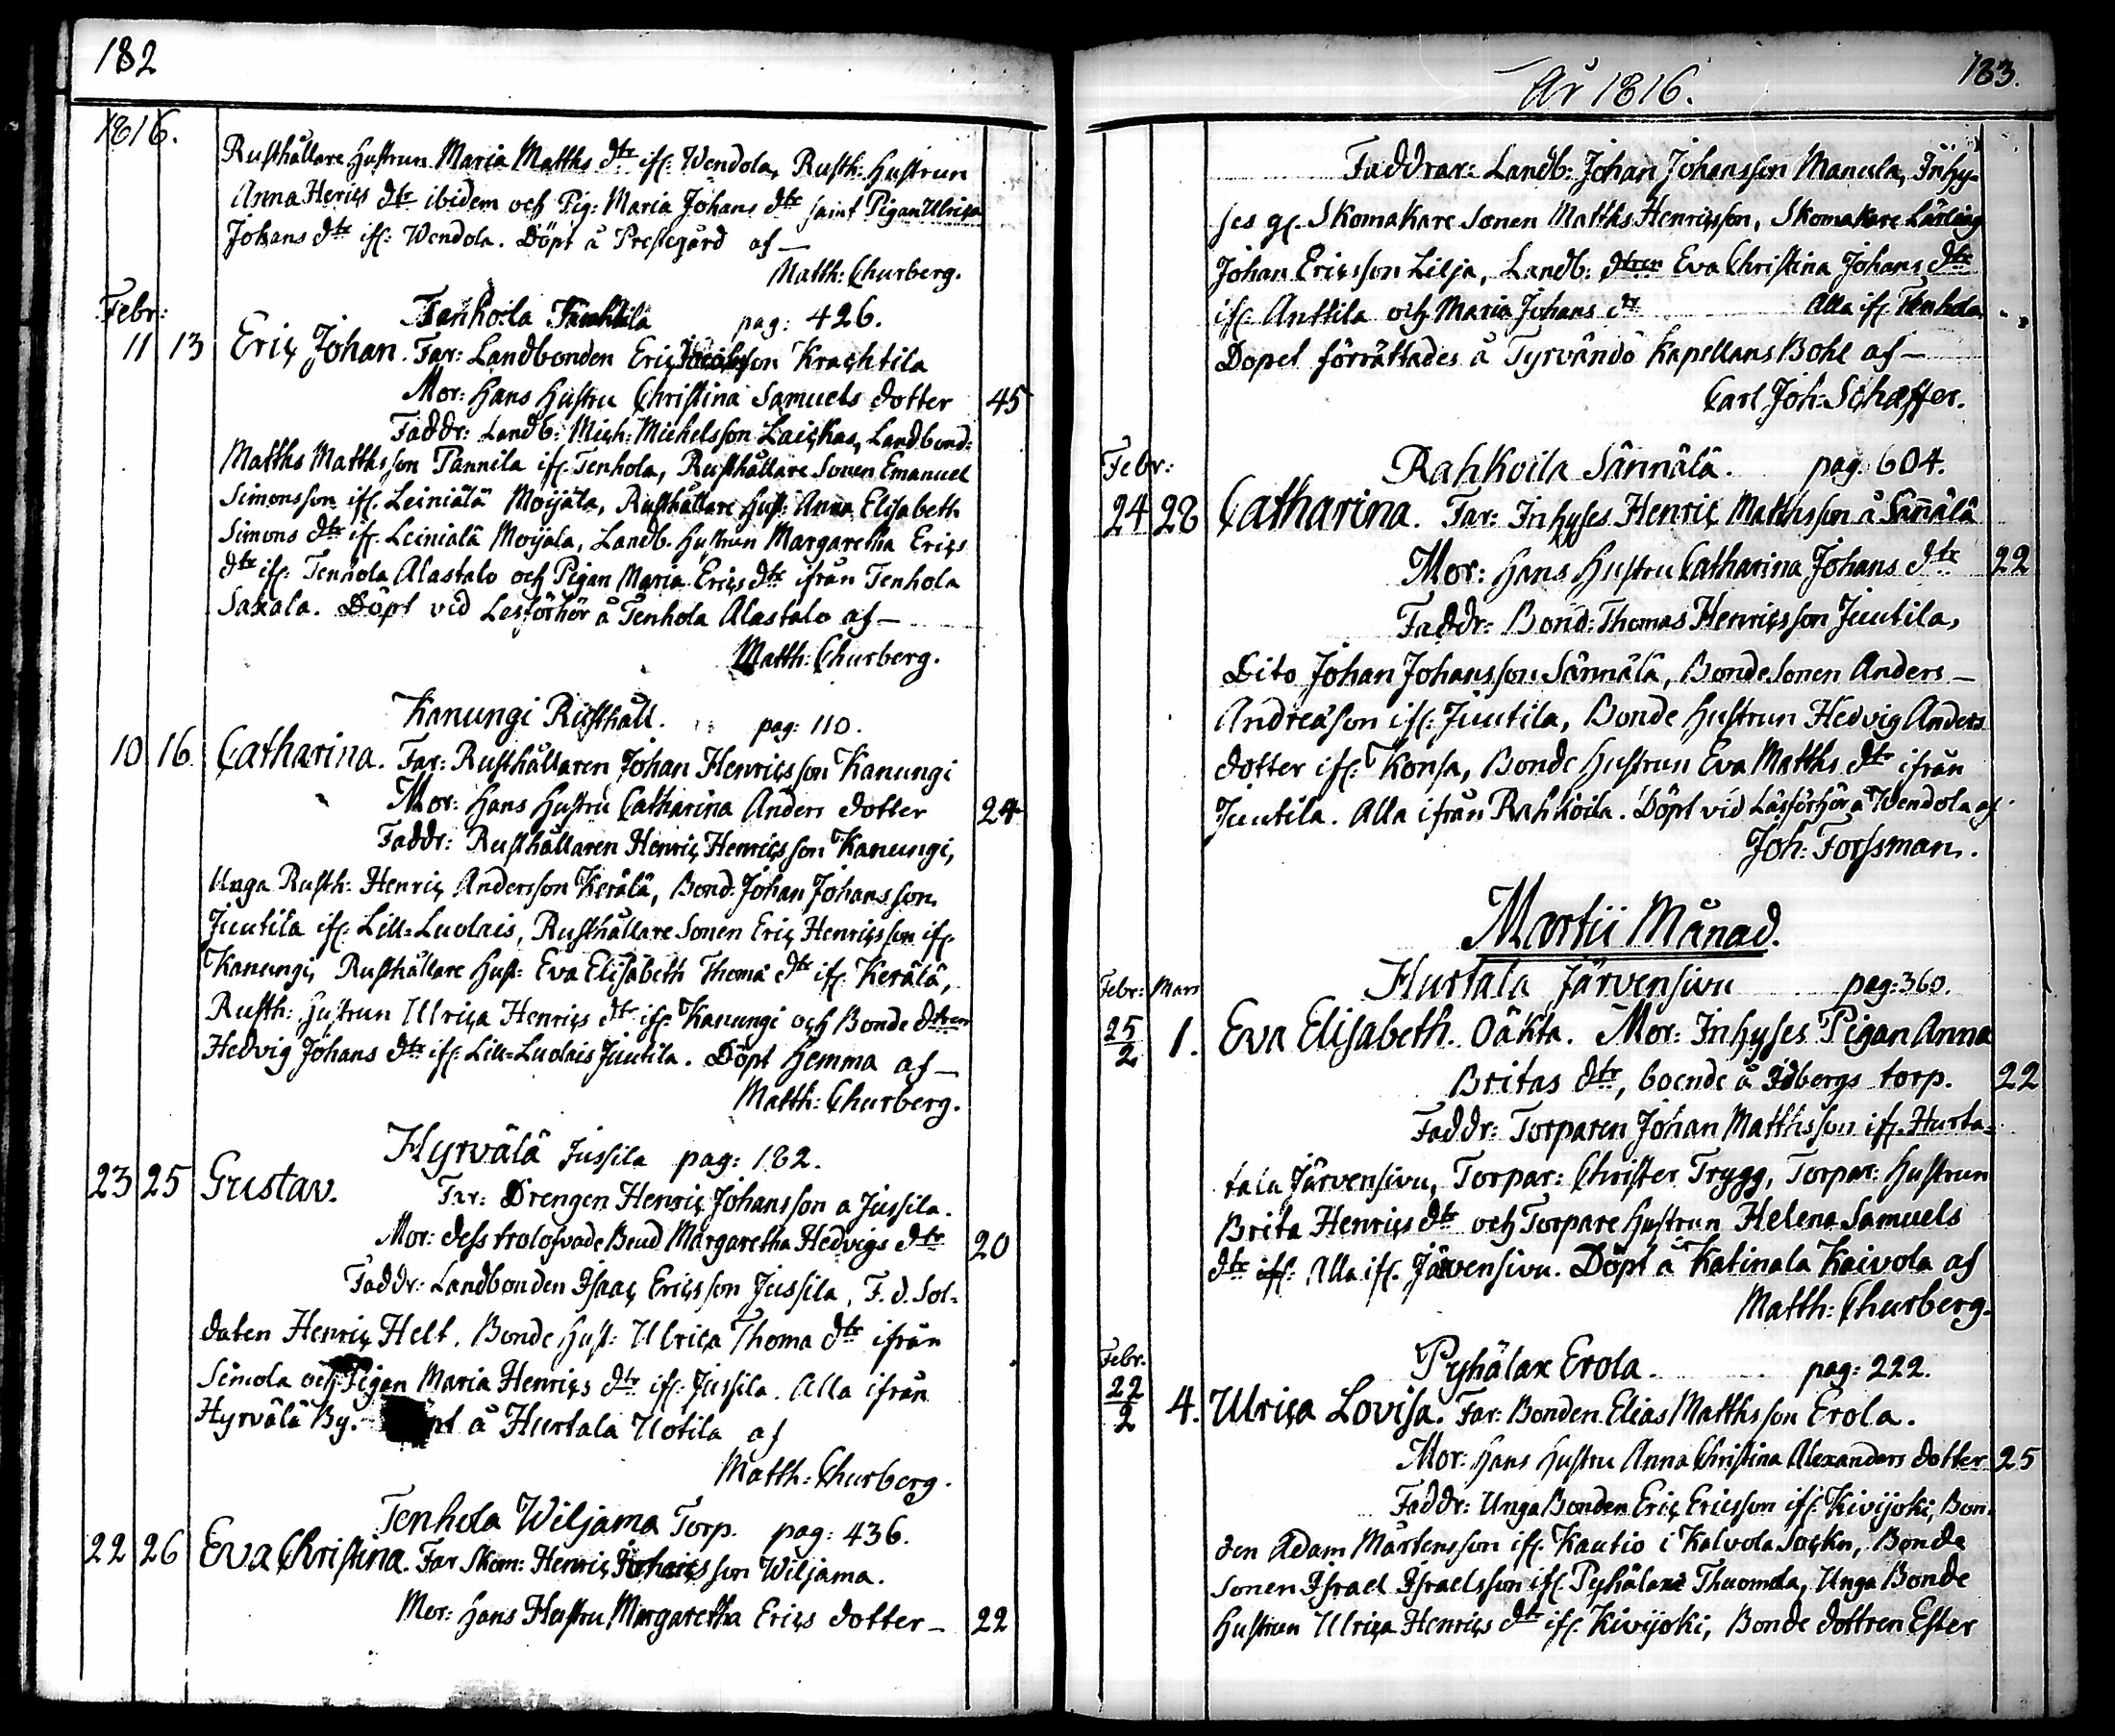 182
1816.
Rusthållare Hustrun Maria Matths dtr ifr. Wendola, Rusth: Hustrun
Anna Henrics dtr ibidem och Pig: Maria Johans dtr samt Pigan Ulrica
Johans dtr ifr: Wendola. Döpt å Prestegård af —
Matth: Churberg.
Febr:
pag: 426.
11 13 Eric Johan. Far: Landbonden Eric Krachtila
Mor: Hans Hustru Christina Samuels dotter 45
Faddr: Landb: Mich: Michelsson Laickas, Landbond:
Matths Matthsson Pannila ifr. Tenhola, Rusthållare Sonen Emanuel
Simonsson ifr. Leiniälä Moijala, Rusthållare Hust: Anna Elisabeth
Simons dtr ifr. Leiniälä Moijala, Landb. Hustrun Margaretha Erics
dtr ifr: Tenhola Alastalo och Pigan Maria Erics dtr ifrån Tenhola
Saxala. Döpt vid Lesförhör å Tenhola Alastalo af —
Matth: Churberg.
Kanungi Rusthåll. pag: 110.
10 16 Catharina. Far: Rusthållaren Johan Henricsson Kanungi
Mor: Hans Hustru Catharina Anders dotter 24
Faddr: Rusthållaren Henric Henricsson Kanungi,
Unga Rusth: Henric Andersson Kerälä, Bond. Johan Johansson
Juutila ifr. Lill-Luolais, Rusthållare Sonen Eric Henricsson ifr.
Kanungi, Rusthållare Hust: Eva Elisabeth Thomæ dtr ifr. Kerälä,
Rusth: Hustrun Ulrica Henrics dtr ifr. Kanungi och Bonde dttren
Hedvig Johans dtr ifr. Lill-Luolais Juutila. Döpt Hemma af —
Matth: Churberg.
Hyrvälä Jussila pag: 182.
23 25 Gustav. Far: Drengen Henric Johansson a Jussila.
Mor: dess trolofvade Brud Margaretha Hedvigs dtr 20
Faddr: Landbonden Isaac Ericsson Jussila, F. d. Sol-
daten Henric Helt. Bonde Hust: Ulrica Thoma dtr ifrån
Simola och Pigan Maria Henrics dtr ifr. Jussila. Alla ifrån
Hyrvälä By. å Hurtala Uotila af
Matth: Churberg.
Tenhola Wiljama Torp. pag: 436.
22 26 Eva Christina. Far Skom: Henric Wiljama.
Mor: Hans Hustru Margaretha Erics dotter — 22
År 1816. 183.
Faddrar: Landb: Johan Johansson Manula, Inhy-
ses gs. Skomakare Sonen Matths Henricsson, Skomakare Lärling
Johan Ericsson Lilja, Landb: dtren Eva Christina Johans dtr
ifr. Anttila och Maria Johans dr Alla ifr. Tenhola.
Dopet förrättades å Tyrvändö Kapellans Bohl af —
Carl Joh: Schæffer.
Febr: Rahkoila Sännälä. pag: 604.
24 28 Catharina. Far: Inhyses Henric Matthsson å Sännälä
Mor: Hans Hustru Catharina Johans dtr 22
Faddr: Bond: Thomas Henricsson Juutila,
Dito Johan Johansson Sännälä, Bonde Sonen Anders —
Andreæson ifr: Juutila, Bonde Hustrun Hedvig Anders
dotter ifr: Konsa, Bonde Hustrun Eva Matths dtr ifrån
Juutila. Alla ifrån Rahkoila. Döpt vid Läsförhör a Wendola af
Joh: Forssman.
Martii Månad.
Febr: Mars Hurtala Järvensivu pag: 360.
25/2 1. Eva Elisabeth. Oäkta. Mor: Inhyses Pigan Anna
Britas dtr, boende å Idbergs torp. 22
Faddr: Torparen Johan Matthsson ifr. Hurta-
tala Järvensivu, Torpar: Christer Trygg, Torpar: Hustrun
Brita Henrics dtr och Torpare Hustrun Helena Samuels
dtr ifr: Alla ifr. Järvensivu. Döpt å Katinala Kaivola af
Matth: Churberg.
Febr. Pyhälax Erola. pag: 222.
22/2 4. Ulrica Lovisa. Far: Bonden Elias Matthsson Erola.
Mor: Hans Hustru Anna Christina Alexanders dotter 25
Faddr: Unga Bonden Eric Ericsson ifr. Kivijoki, Bon-
den Adam Mårtensson ifr. Kautio i Kalvola Sockn, Bonde
Sonen Israel Israelsson ifr. Pyhälax Thuomola, Unga Bonde
Hustrun Ulrica Henrics dtr ifr. Kivijoki, Bonde dottren Ester